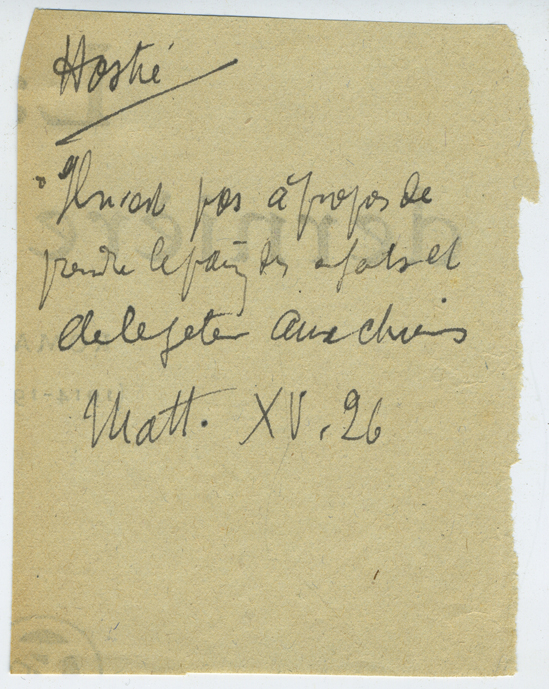 Hostie
"Il n'est pas à propos de
prendre le pain des enfants et
de le jeter aux chiens
Matt. XV. 26
dernière